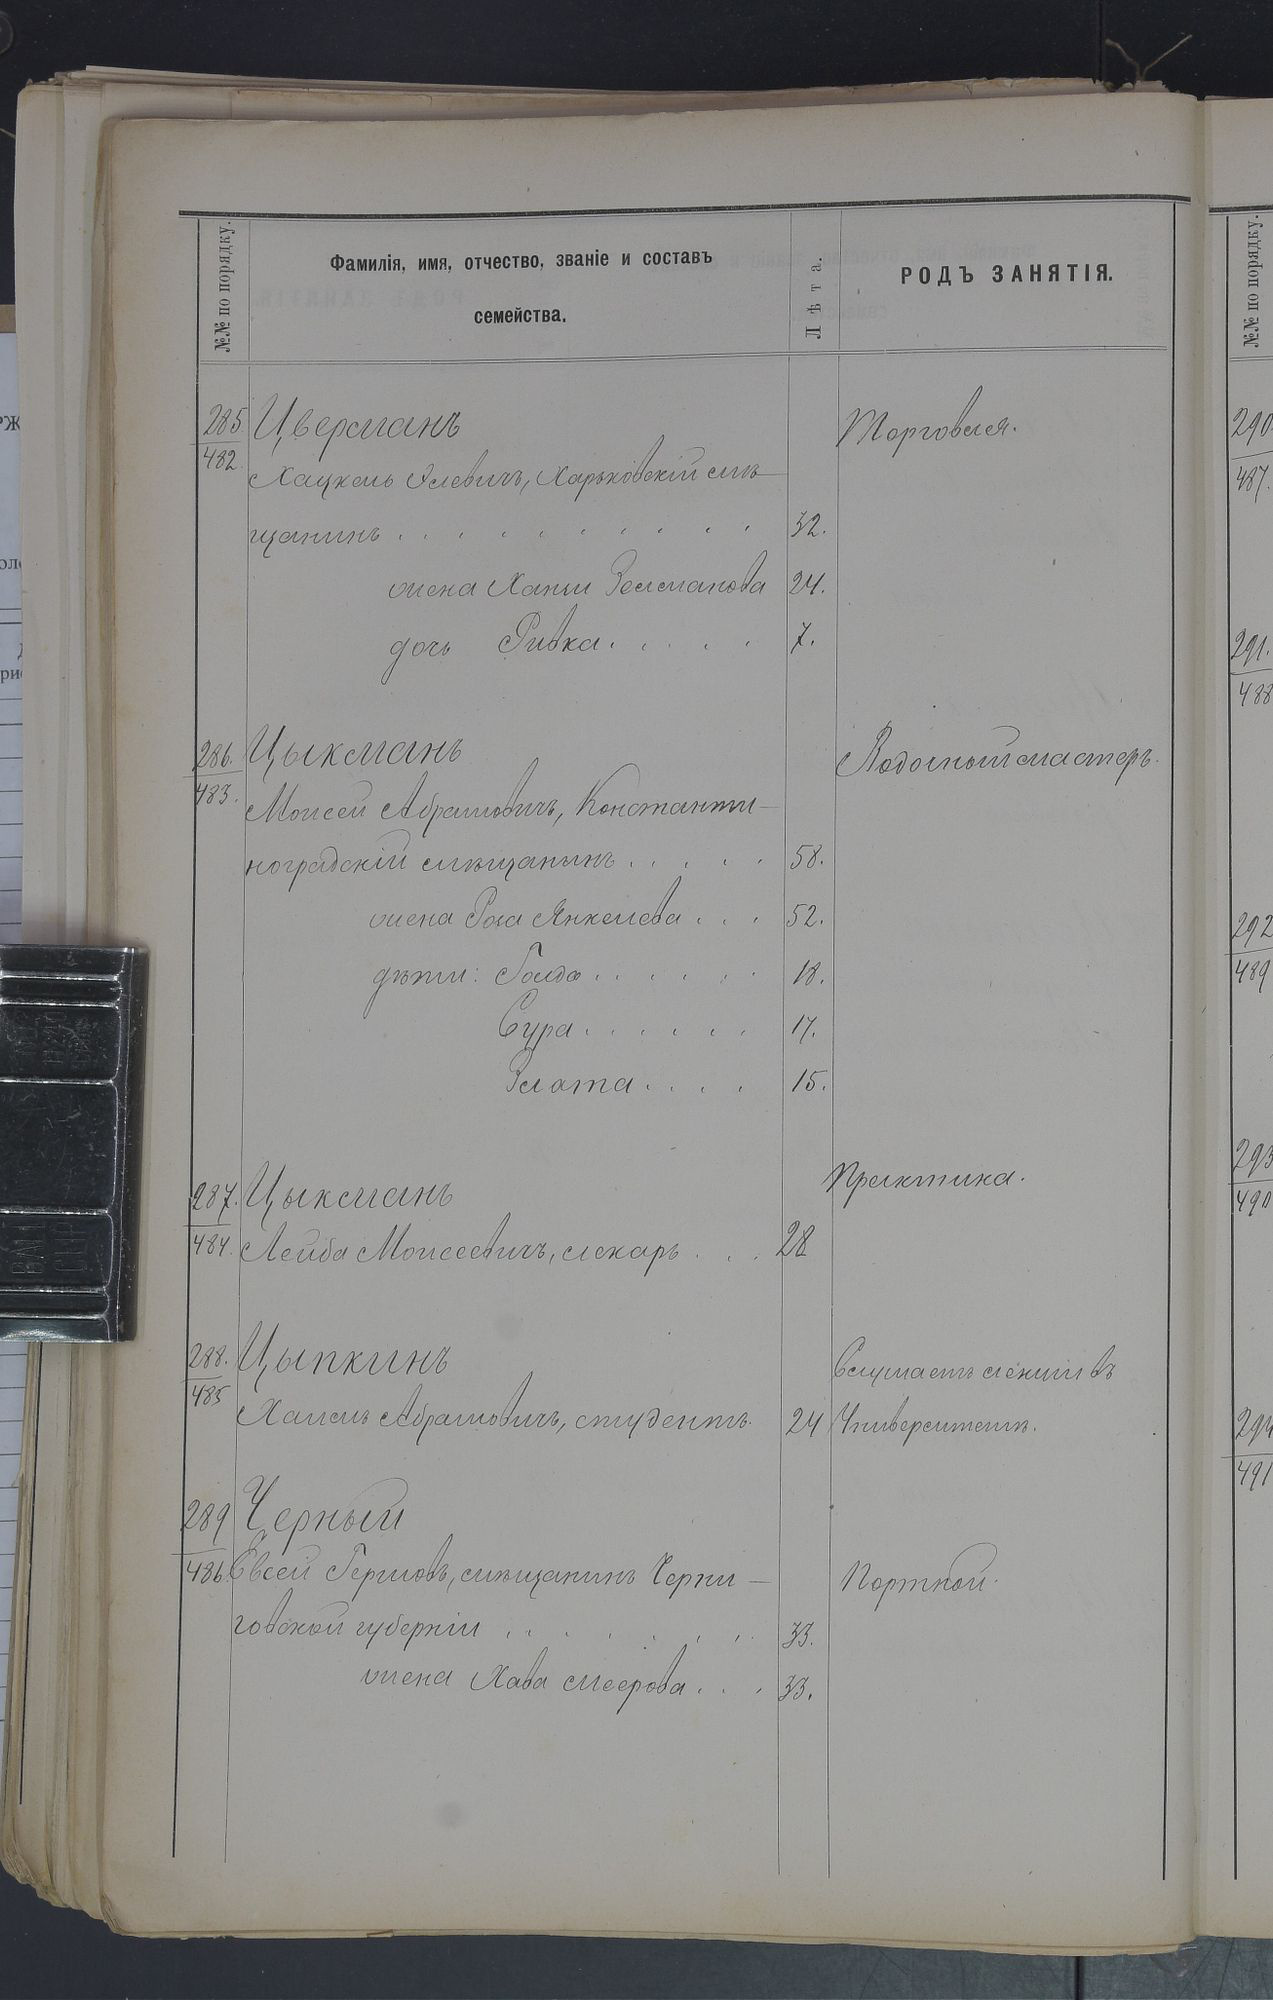 №№ по порядку.
Фамилія, имя, отчество, званіе и составъ
семейства.
Лѣта.
РОДЪ ЗАНЯТІЯ.
285. Цверманъ Торговля.
482 Хацкель Элевичъ, Харьковскій мѣ-
щанинъ . . . . . . . . . . 32.
жена Ханя Зелманова 24.
дочь Ривка . . . . . 7.
286. Цыкманъ Водочный мастеръ.
483. Моисей Абрамовичъ, Константи-
ноградскій мѣщанинъ . . . . . 58.
жена Роха Янкелева . . . 52.
дѣти: Голда . . . . . . 18.
Сура . . . . . . 17.
Злота . . . . 15.
287. Цыкманъ Практика.
484. Лейба Моисеевичъ, лекарь . . . 28
288. Цыпкинъ Слушаетъ лекціи въ
485 Хаимъ Абрамовичъ, студентъ. 24 Университетѣ.
289 Черный
486. Евсей Гершовъ, мѣщанинъ Черни- Портной.
говской губерніи . . . . . . . . 33.
жена Хава Меерова . . . 33.
№№ по порядку.
290
487.
291.
488
292
489
293
490
294
491